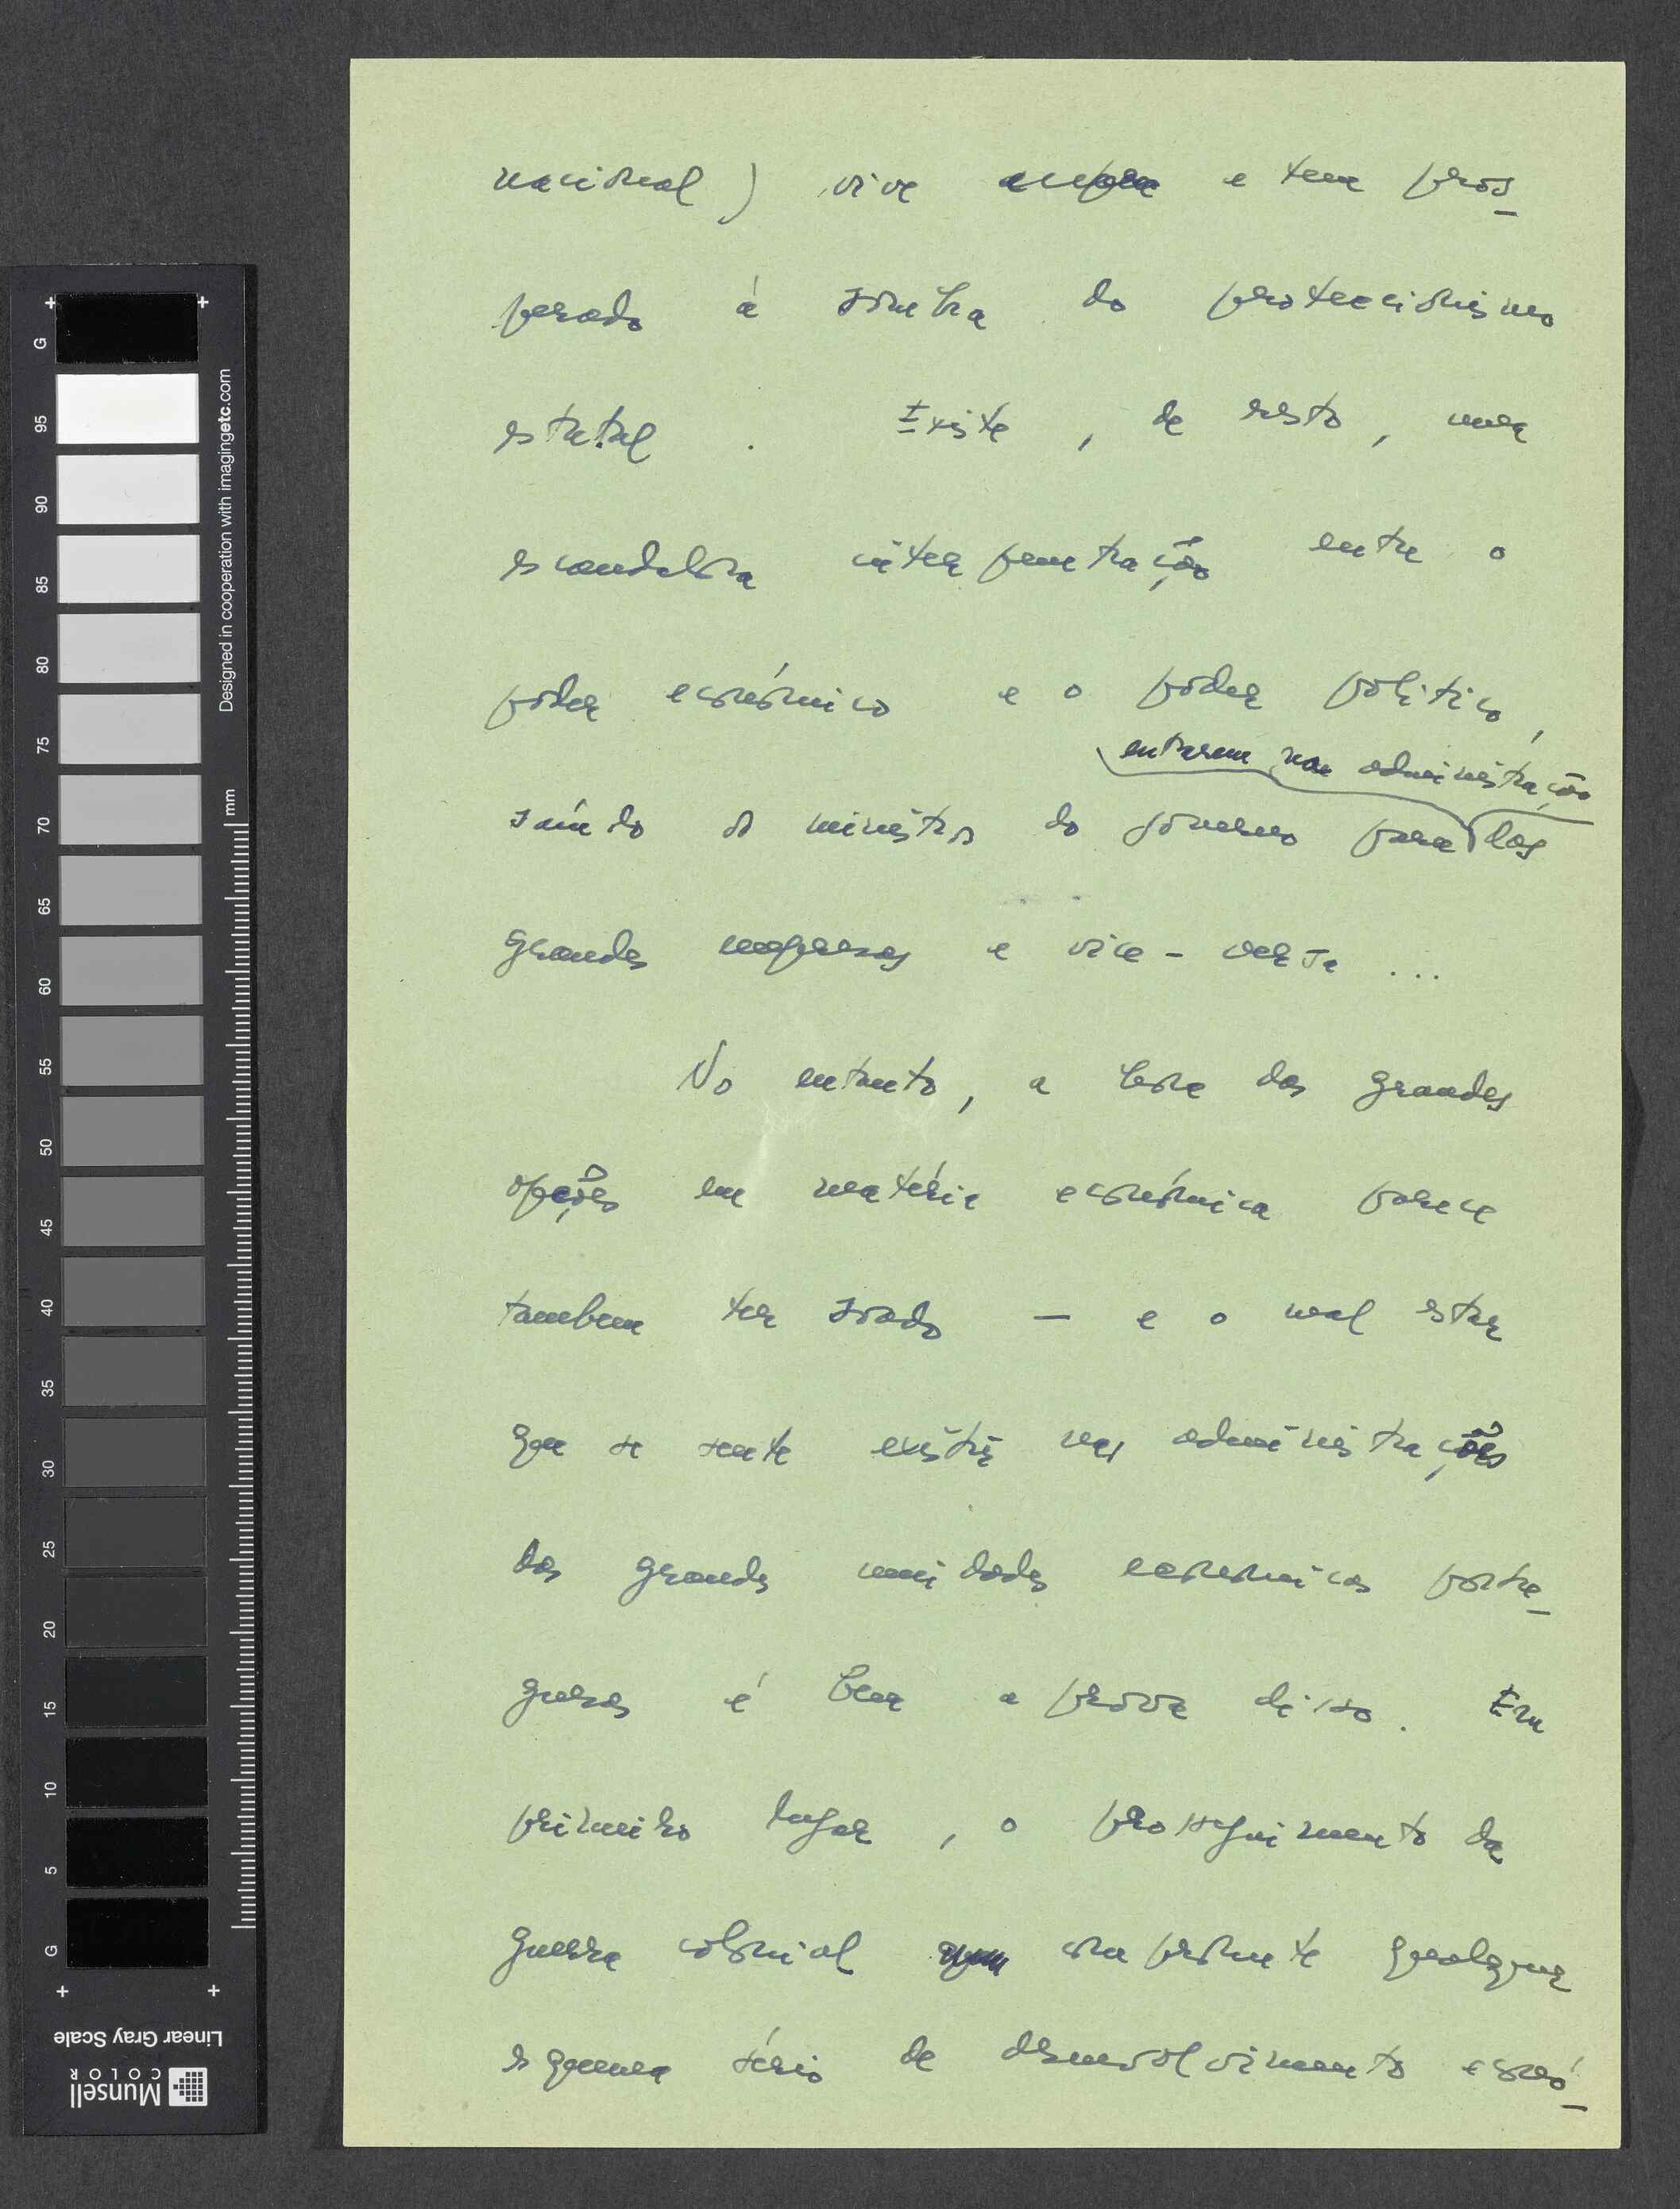 nacional) vive e tem pros-
perado à sombra do proteccionismo
estatal. Existe, de resto, uma
escandalosa interpenetração entre o
poder económico e o poder político,
entrarem na administração
saíndo os ministros do governo para das
grandes empresas e vice-versa ...
No entanto, a hora das grandes
opções em matéria económica parece
tambem ter soado — e o mal estar
que se sente existir nas administrações
das grandes unidades económicas portu-
guesas é bem a prova disso. Em
primeiro lugar, o prosseguimento da
guerra colonial compromete qualquer
esquema sério de desenvolvimento econó-
G
95
90
85
80
75
70
65
60
55
50
45
40
35
30
25
20
15
10
5
G
mm
Designed in cooperation with imagingetc.com
Linear Gray Scale
Munsell
COLOR